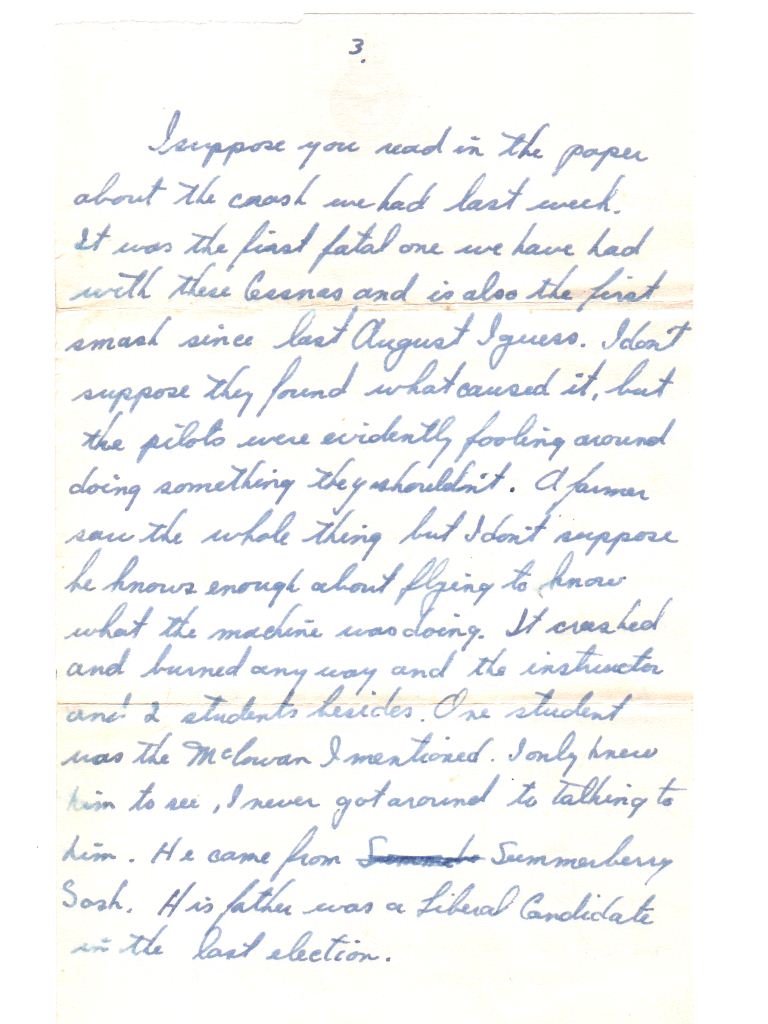 3.
I suppose you read in the paper
about the crash we had last week.
It was the first fatal one we have had
with these Cessnas and is also the first
smash since last August I guess. I don't
suppose they found what caused it, but
the pilots were evidently fooling around
doing something they shouldn't. A farmer
saw the whole thing but I don't suppose
he knows enough about flying to know
what the machine was doing. It crashed
and burned anyway and the instructor
and 2 students besides. One student
was the McCowan I mentioned. I only knew
him to see, I never got around to talking to
him. He came from Summerberry
Sash. His father was a Liberal Candidate
in the last election.